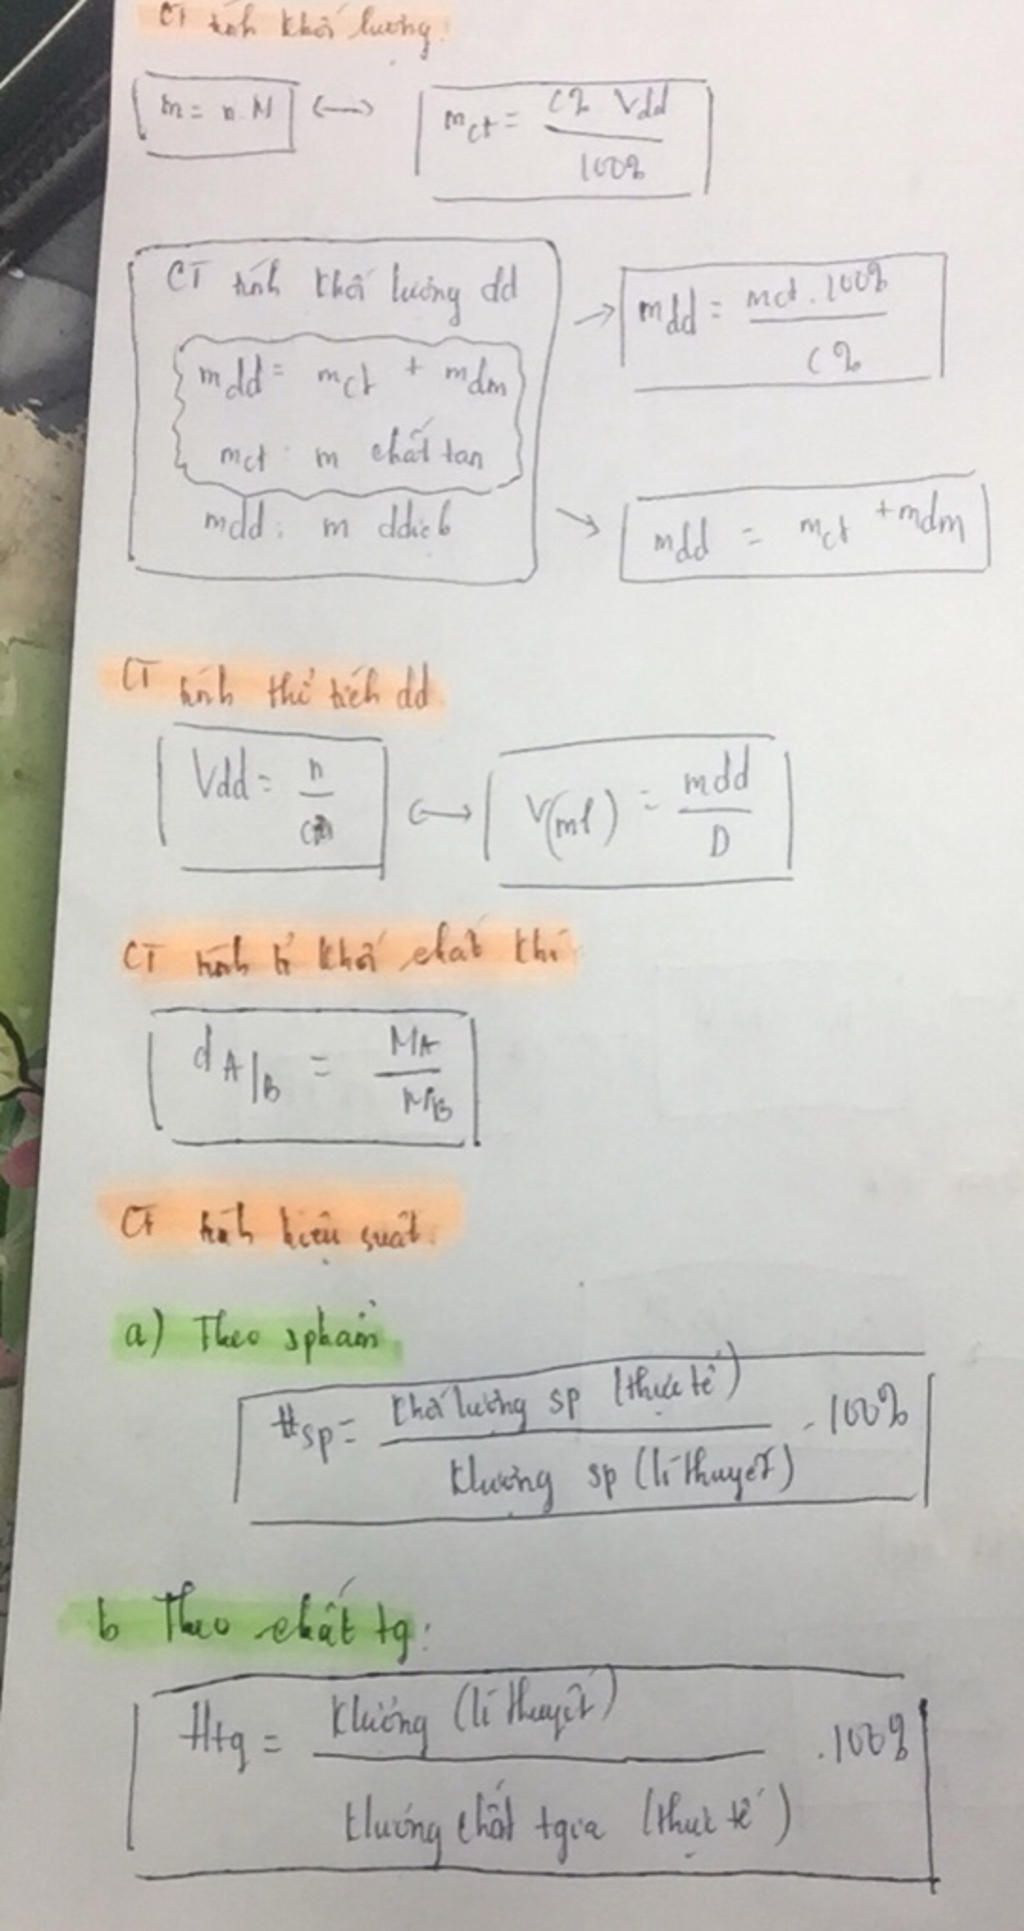 CT tính khối lượng:
m = n.M ↔ mct = C% Vdd / 100%
CT tính khối lượng dd
mdd = mct + mdm
mct : m chất tan
mdd : m ddịch
→ mdd = mct . 100% / C%
→ mdd = mct + mdm
CT tính thể tích dd
Vdd = n / CM ↔ V(ml) = mdd / D
CT tính tỉ khối chất khí
d A/B = MA / MB
CT tính hiệu suất.
a) Theo sphẩm
Hsp = Khối lượng sp (thực tế) / klượng sp (lí thuyết) . 100%
b Theo chất tg:
Htg = Klượng (lí thuyết) / klượng chất tgia (thực tế) . 100%